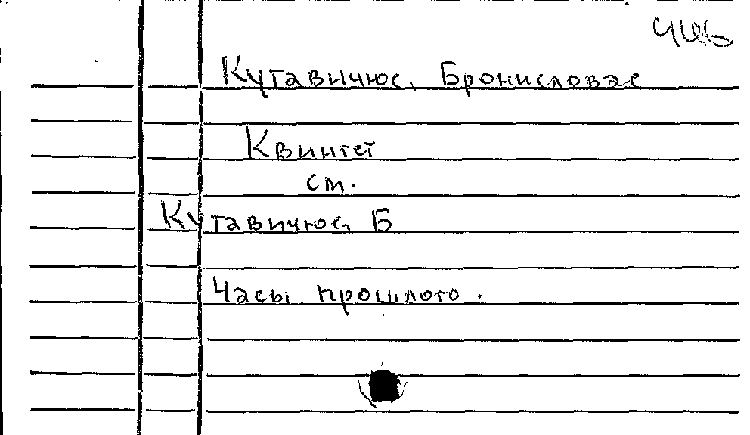 Кутавичюс, Бронисловас
Квинтет
см.
Кутавичюс, Б
Часы прошлого.